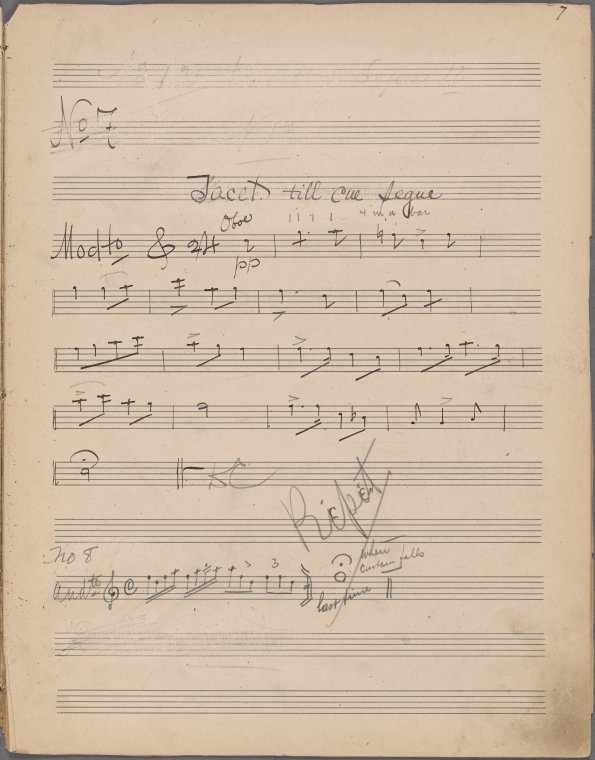 7
No 7
Tacet till cue Segue
Oboe
4 m. a bar
Modto 2/4
pp
DC
Repeat
No 8
when
curtain falls
Andte
3 3
last time